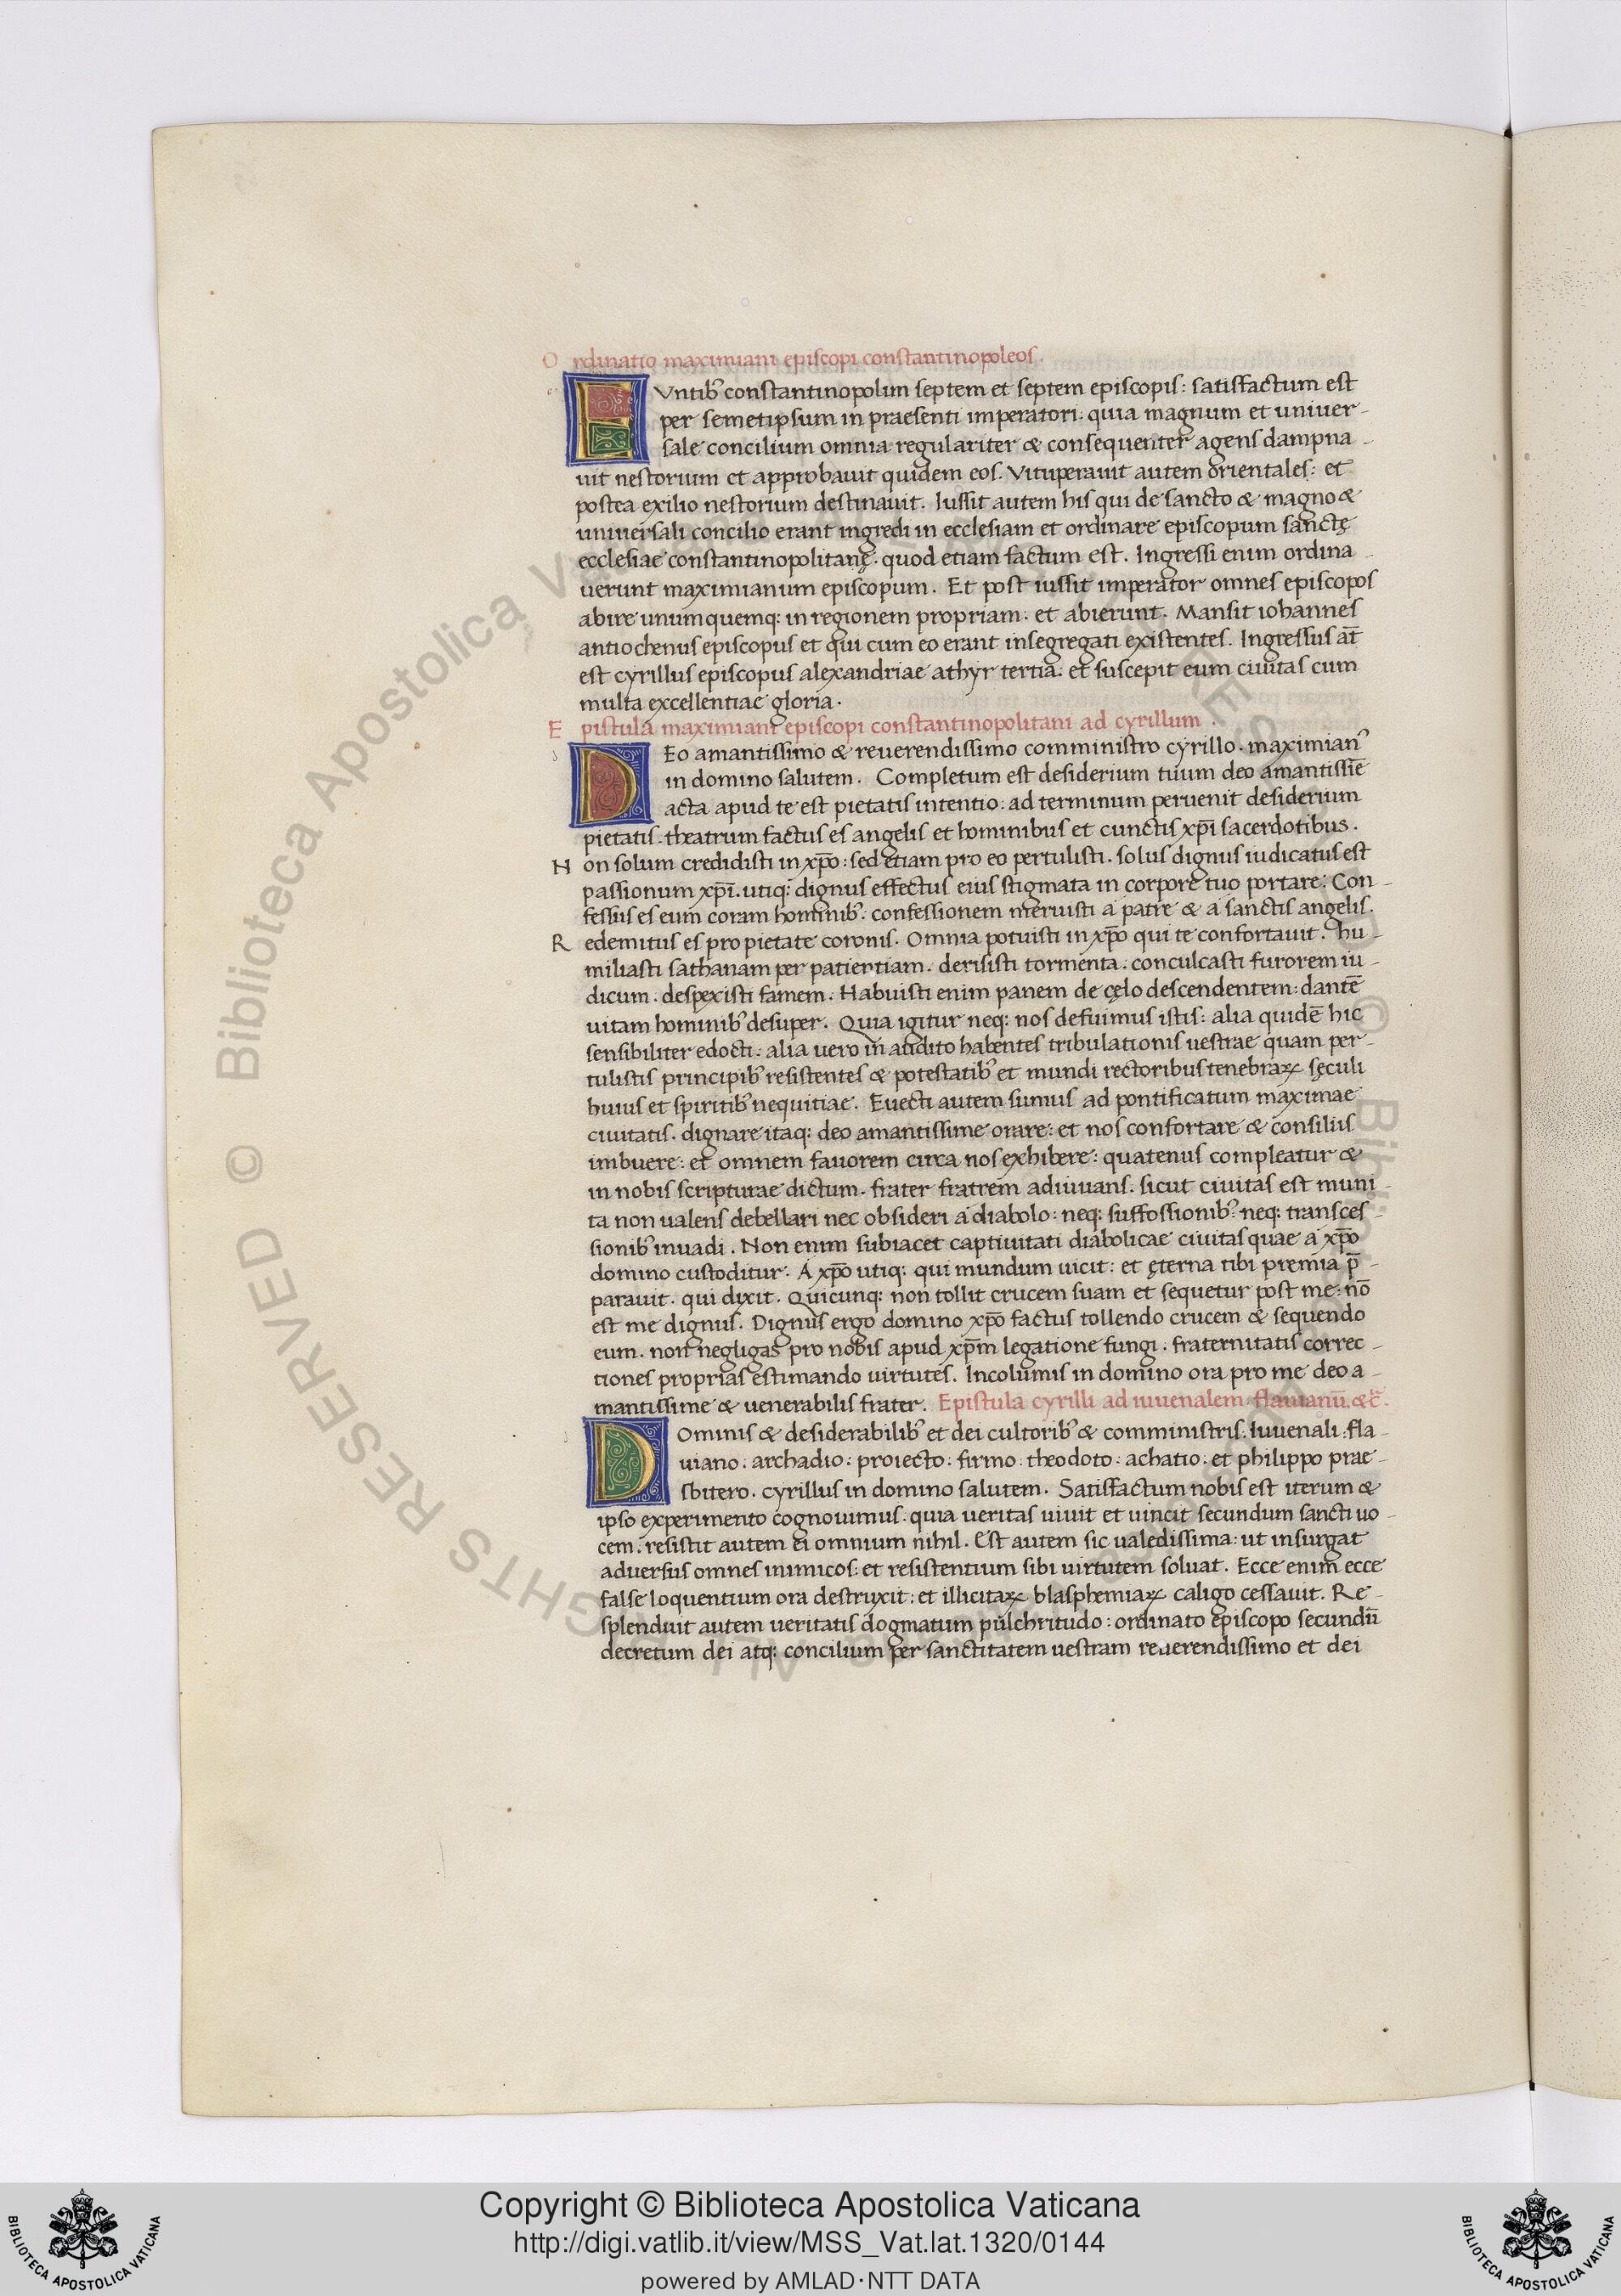 Ordinatio maximiani episcopi constantinopoleos.
EVntib᾽ constantinopolim septem et septem episcopis: satisfactum est
per semetipsum in praesenti imperatori: quia magnum et univer-
sale concilium omnia regulariter & consequenter agens dampna-
vit nestorium et approbavit quidem eos. Vituperavit autem orientales: et
postea exilio nestorium destinavit. Iussit autem his qui de sancto & magno &
universali concilio erant ingredi in ecclesiam et ordinare episcopum sanctę
ecclesiae constantinopolitanę. quod etiam factum est. Ingressi enim ordina-
uerunt maximianum episcopum. Et post iussit imperator omnes episcopos
abire unumquemq: in regionem propriam. et abierunt. Mansit iohannes
antiochenus episcopus et qui cum eo erant insegregati existentes. Ingressus at̄
est cyrillus episcopus alexandriae athyr tertia. et suscepit eum civitas cum
multa excellentiae gloria.
Epistula maximiani episcopi constantinopolitani ad cyrillum.
DEo amantissimo & reverendissimo comministro cyrillo. maximian᾽
in domino salutem. Completum est desiderium tuum deo amantissīe
acta apud te est pietatis intentio: ad terminum pervenit desiderium
pietatis. theatrum factus es angelis et hominibus et cunctis xp̄i sacerdotibus.
Non solum credidisti in xp̄o: sed etiam pro eo pertulisti. solus dignus iudicatus est
passionum xp̄i. utiq: dignus effectus eius stigmata in corpore tuo portare: Con-
fessus es eum coram hominib᾽: confessionem meruisti a patre & a sanctis angelis.
Redemitus es pro pietate coronis. Omnia potuisti in xp̄o qui te confortavit. hu-
miliasti sathanam per patientiam. derisisti tormenta. conculcasti furorem iu-
dicum. despexisti famem. Habuisti enim panem de cęlo descendentem: dantē
uitam hominib᾽ desuper. Quia igitur neq: nos defuimus istis: alia quidē hic
sensibiliter edocti: alia uero in audito habentes tribulationis uestrae quam per-
tulistis principib᾽ resistentes & potestatib᾽ et mundi rectoribus tenebraꝝ sęculi
huius et spiritib᾽ nequitiae. Euecti autem sumus ad pontificatum maximae
civitatis. dignare itaq: deo amantissime orare: et nos confortare & consiliis
imbuere: et omnem favorem circa nos exhibere: quatenus compleatur &
in nobis scripturae dictum. frater fratrem adiuvans. sicut civitas est muni-
ta non ualens debellari nec obsideri a diabolo: neq: suffossionib᾽: neq: transces-
sionib᾽ invadi. Non enim subiacet captivitati diabolicae civitas quae a xp̄o
domino custoditur. A xp̄o utiq: qui mundum vicit: et ęterna tibi premia p̄-
paravit. qui dixit. Quicunq: non tollit crucem suam et sequetur post me: nō
est me dignus. Dignus ergo domino xp̄o factus tollendo crucem & sequendo
eum. non negligas pro nobis apud xp̄m legatione fungi. fraternitatis correc-
tiones proprias estimando virtutes. Incolumis in domino ora pro me deo a-
mantissime & uenerabilis frater. Epistula cyrilli ad iuuenalem flavianū. &c̄.
DOminis & desiderabilib᾽ et dei cultorib᾽ & comministris: Iuuenali: fla-
uiano: archadio: proiecto: firmo: theodoto: achatio: et philippo prae-
sbitero. cyrillus in domino salutem. Satisfactum nobis est iterum &
ipso experimento cognouimus. quia ueritas uiuit et uincit secundum sancti uo-
cem. resistit autem ei omnium nihil. Est autem sic ualedissima: ut insurgat
adversus omnes inimicos: et resistentium sibi virtutem soluat. Ecce enim ecce
false loquentium ora destruxit: et illicitaꝝ blasphemiaꝝ caligo cessavit. Re-
splenduit autem veritatis dogmatum pulchritudo: ordinato episcopo secundū
decretum dei atq: concilium per sanctitatem vestram reverendissimo et dei
© Biblioteca Apostolica Vaticana
ALL RIGHTS RESERVED
Copyright © Biblioteca Apostolica Vaticana
http://digi.vatlib.it/view/MSS_Vat.lat.1320/0144
powered by AMLAD·NTT DATA
BIBLIOTECA APOSTOLICA VATICANA
BIBLIOTECA APOSTOLICA VATICANA